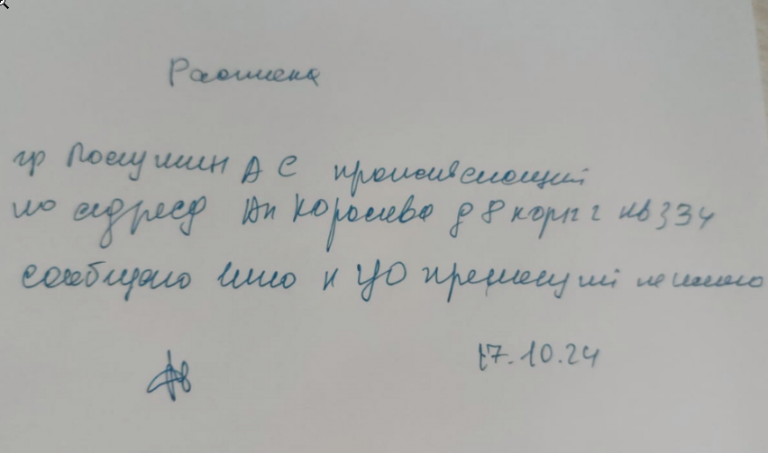 Расписка
гр А С проживающий
по адресу Ак Королева д 8 корп 2 кв 334
сообщаю что к УО претензий не имею
17.10.24